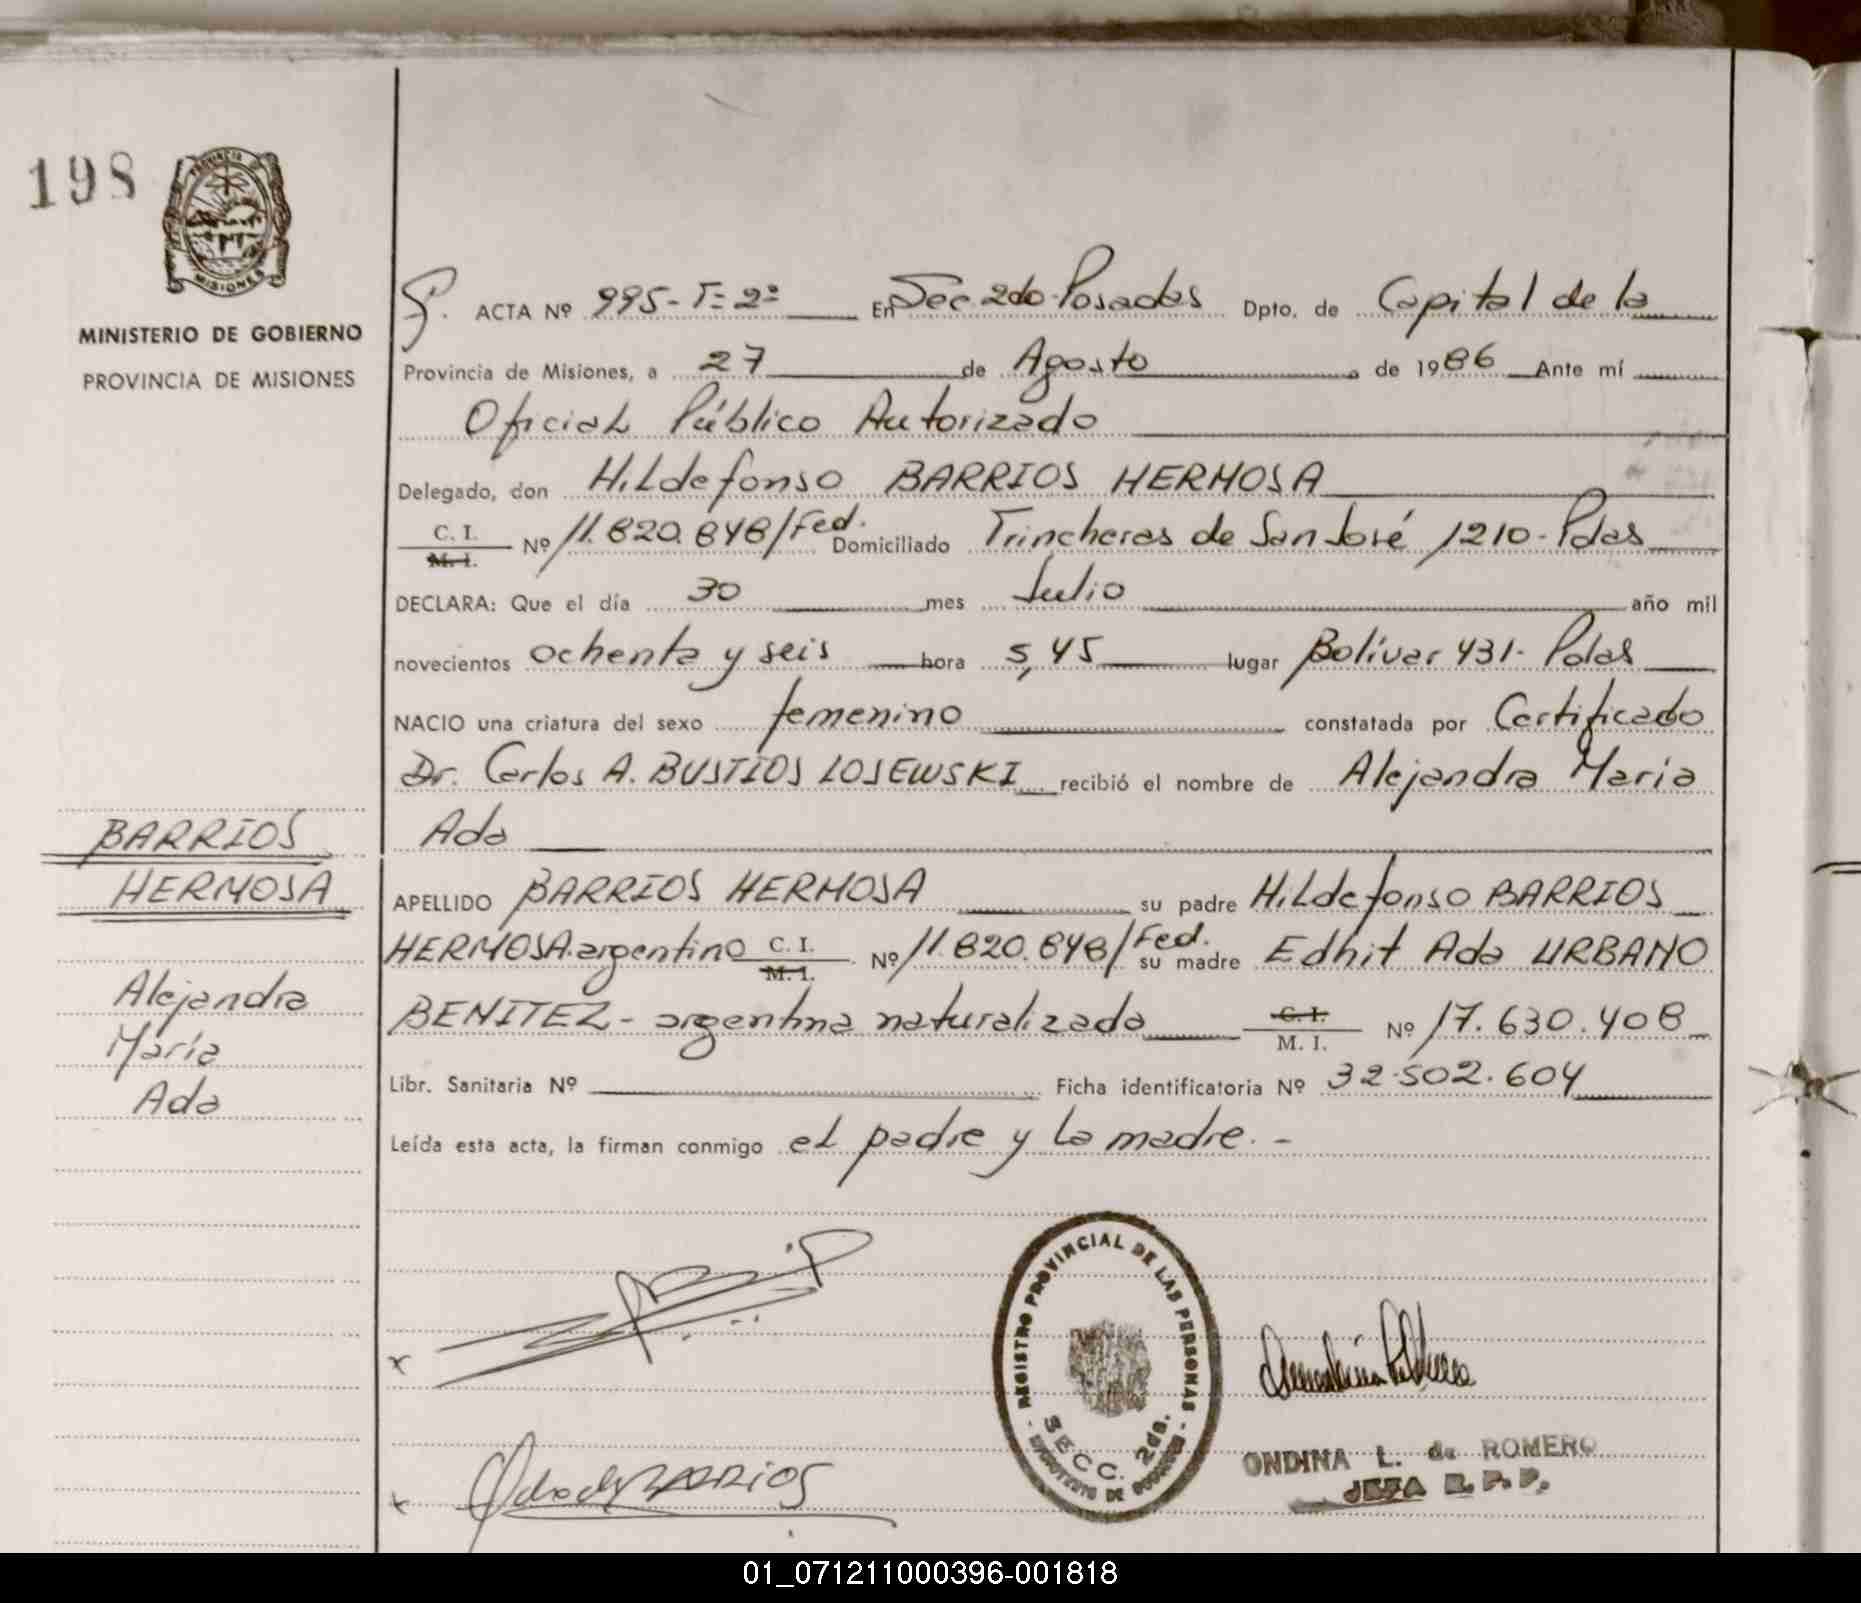 198
PROVINCIA DE
MISIONES
MINISTERIO DE GOBIERNO
PROVINCIA DE MISIONES
BARRIOS
HERMOSA
Alejandra
María
Ada
ACTA Nº 995-T=2º En Sec. 2do. Posadas Dpto. de Capital de la
Provincia de Misiones, a 27 de Agosto de 1986 Ante mí
Oficial Público Autorizado
Delegado, don Hildefonso BARRIOS HERMOSA
C. I.
M. I. Nº 11.820.848/Fed. Domiciliado Trincheras de San José 1210-Pdas
DECLARA: Que el día 30 mes Julio año mil
novecientos ochenta y seis hora 5,45 lugar Bolívar 431- Pdas
NACIO una criatura del sexo femenino constatada por Certificado
Dr. Carlos A. BUSTIOS LOSEWSKI recibió el nombre de Alejandra María
Ada
APELLIDO BARRIOS HERMOSA su padre Hildefonso BARRIOS
HERMOSA.argentino C. I. M. I. Nº 11.820.848/Fed. su madre Edhit Ada URBANO
BENITEZ - argentina naturalizada C. I. M. I. Nº 17.630.408
Libr. Sanitaria Nº Ficha identificatoria Nº 32.502.604
Leída esta acta, la firman conmigo el padre y la madre. -
REGISTRO PROVINCIAL DE LAS PERSONAS
SECC. 2da.
x
x BARRIOS
ONDINA L. de ROMERO
JEFA R. P. P.
01_071211000396-001818